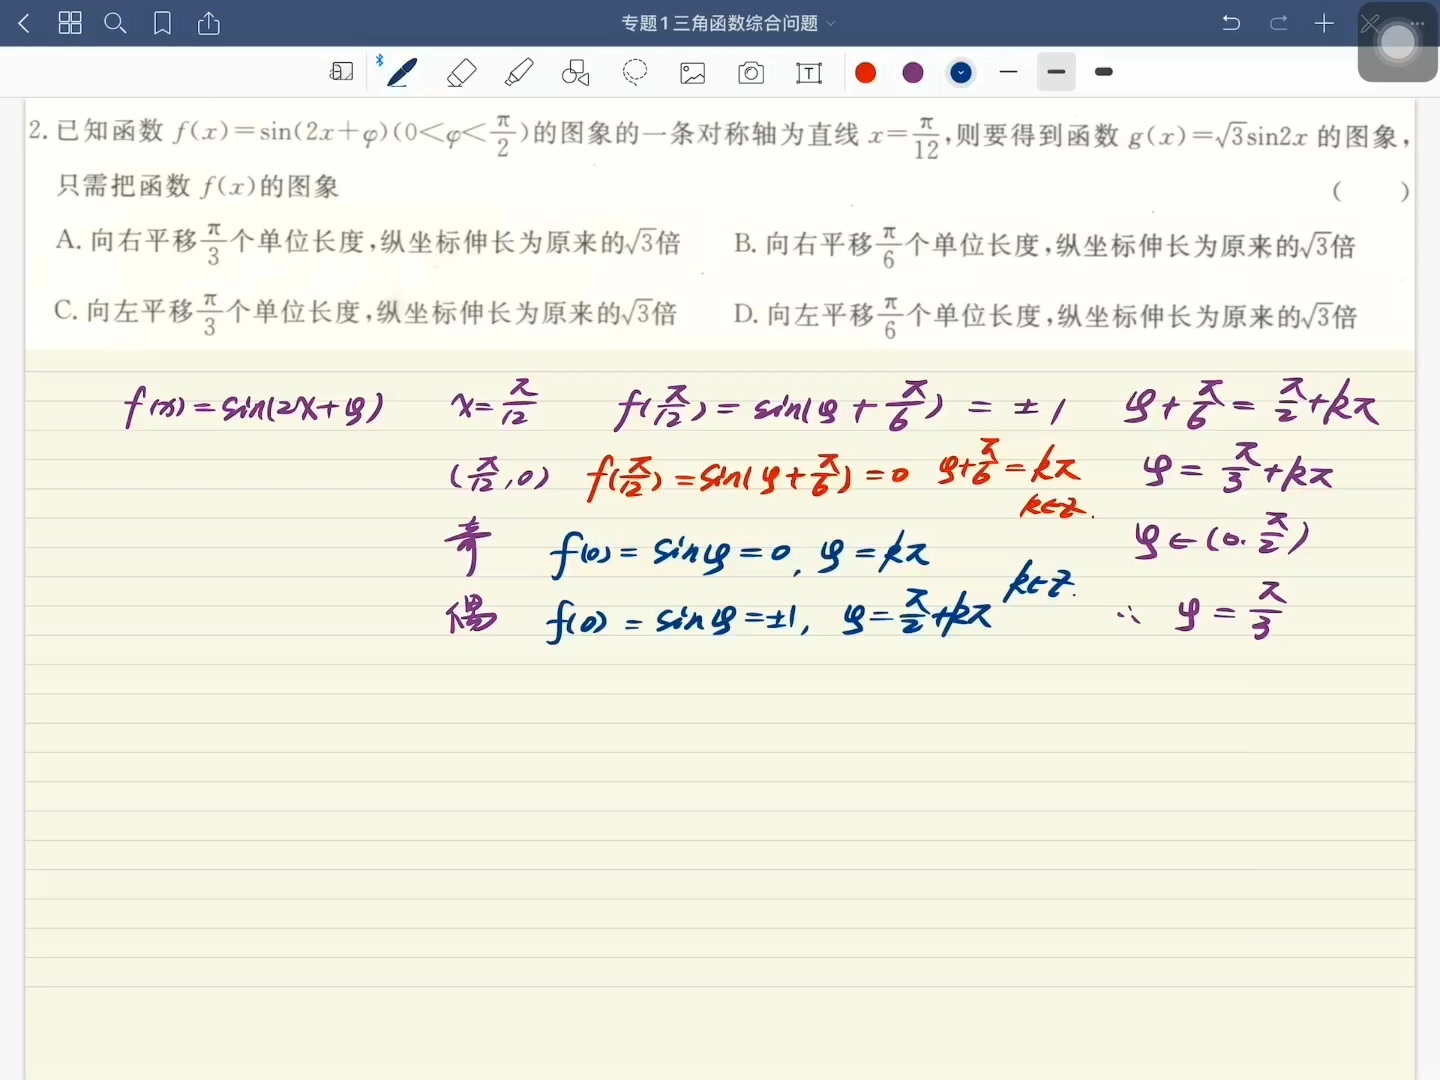 专题1三角函数综合问题
2.已知函数 f(x)=sin(2x+φ)(0<φ<π/2)的图象的一条对称轴为直线 x=π/12,则要得到函数 g(x)=√3sin2x 的图象,
只需把函数 f(x)的图象 ( )
A. 向右平移π/3个单位长度,纵坐标伸长为原来的√3倍 B. 向右平移π/6个单位长度,纵坐标伸长为原来的√3倍
C. 向左平移π/3个单位长度,纵坐标伸长为原来的√3倍 D. 向左平移π/6个单位长度,纵坐标伸长为原来的√3倍
f(x)=sin(2x+φ) x=π/12 f(π/12)=sin(φ+π/6)=±1 φ+π/6=π/2+kπ
(π/12,0) f(π/12)=sin(φ+π/6)=0 φ+π/6=kπ k∈Z. φ=π/3+kπ
奇 f(0)=sinφ=0, φ=kπ φ∈(0.π/2)
偶 f(0)=sinφ=±1, φ=π/2+kπ k∈Z. ∴ φ=π/3